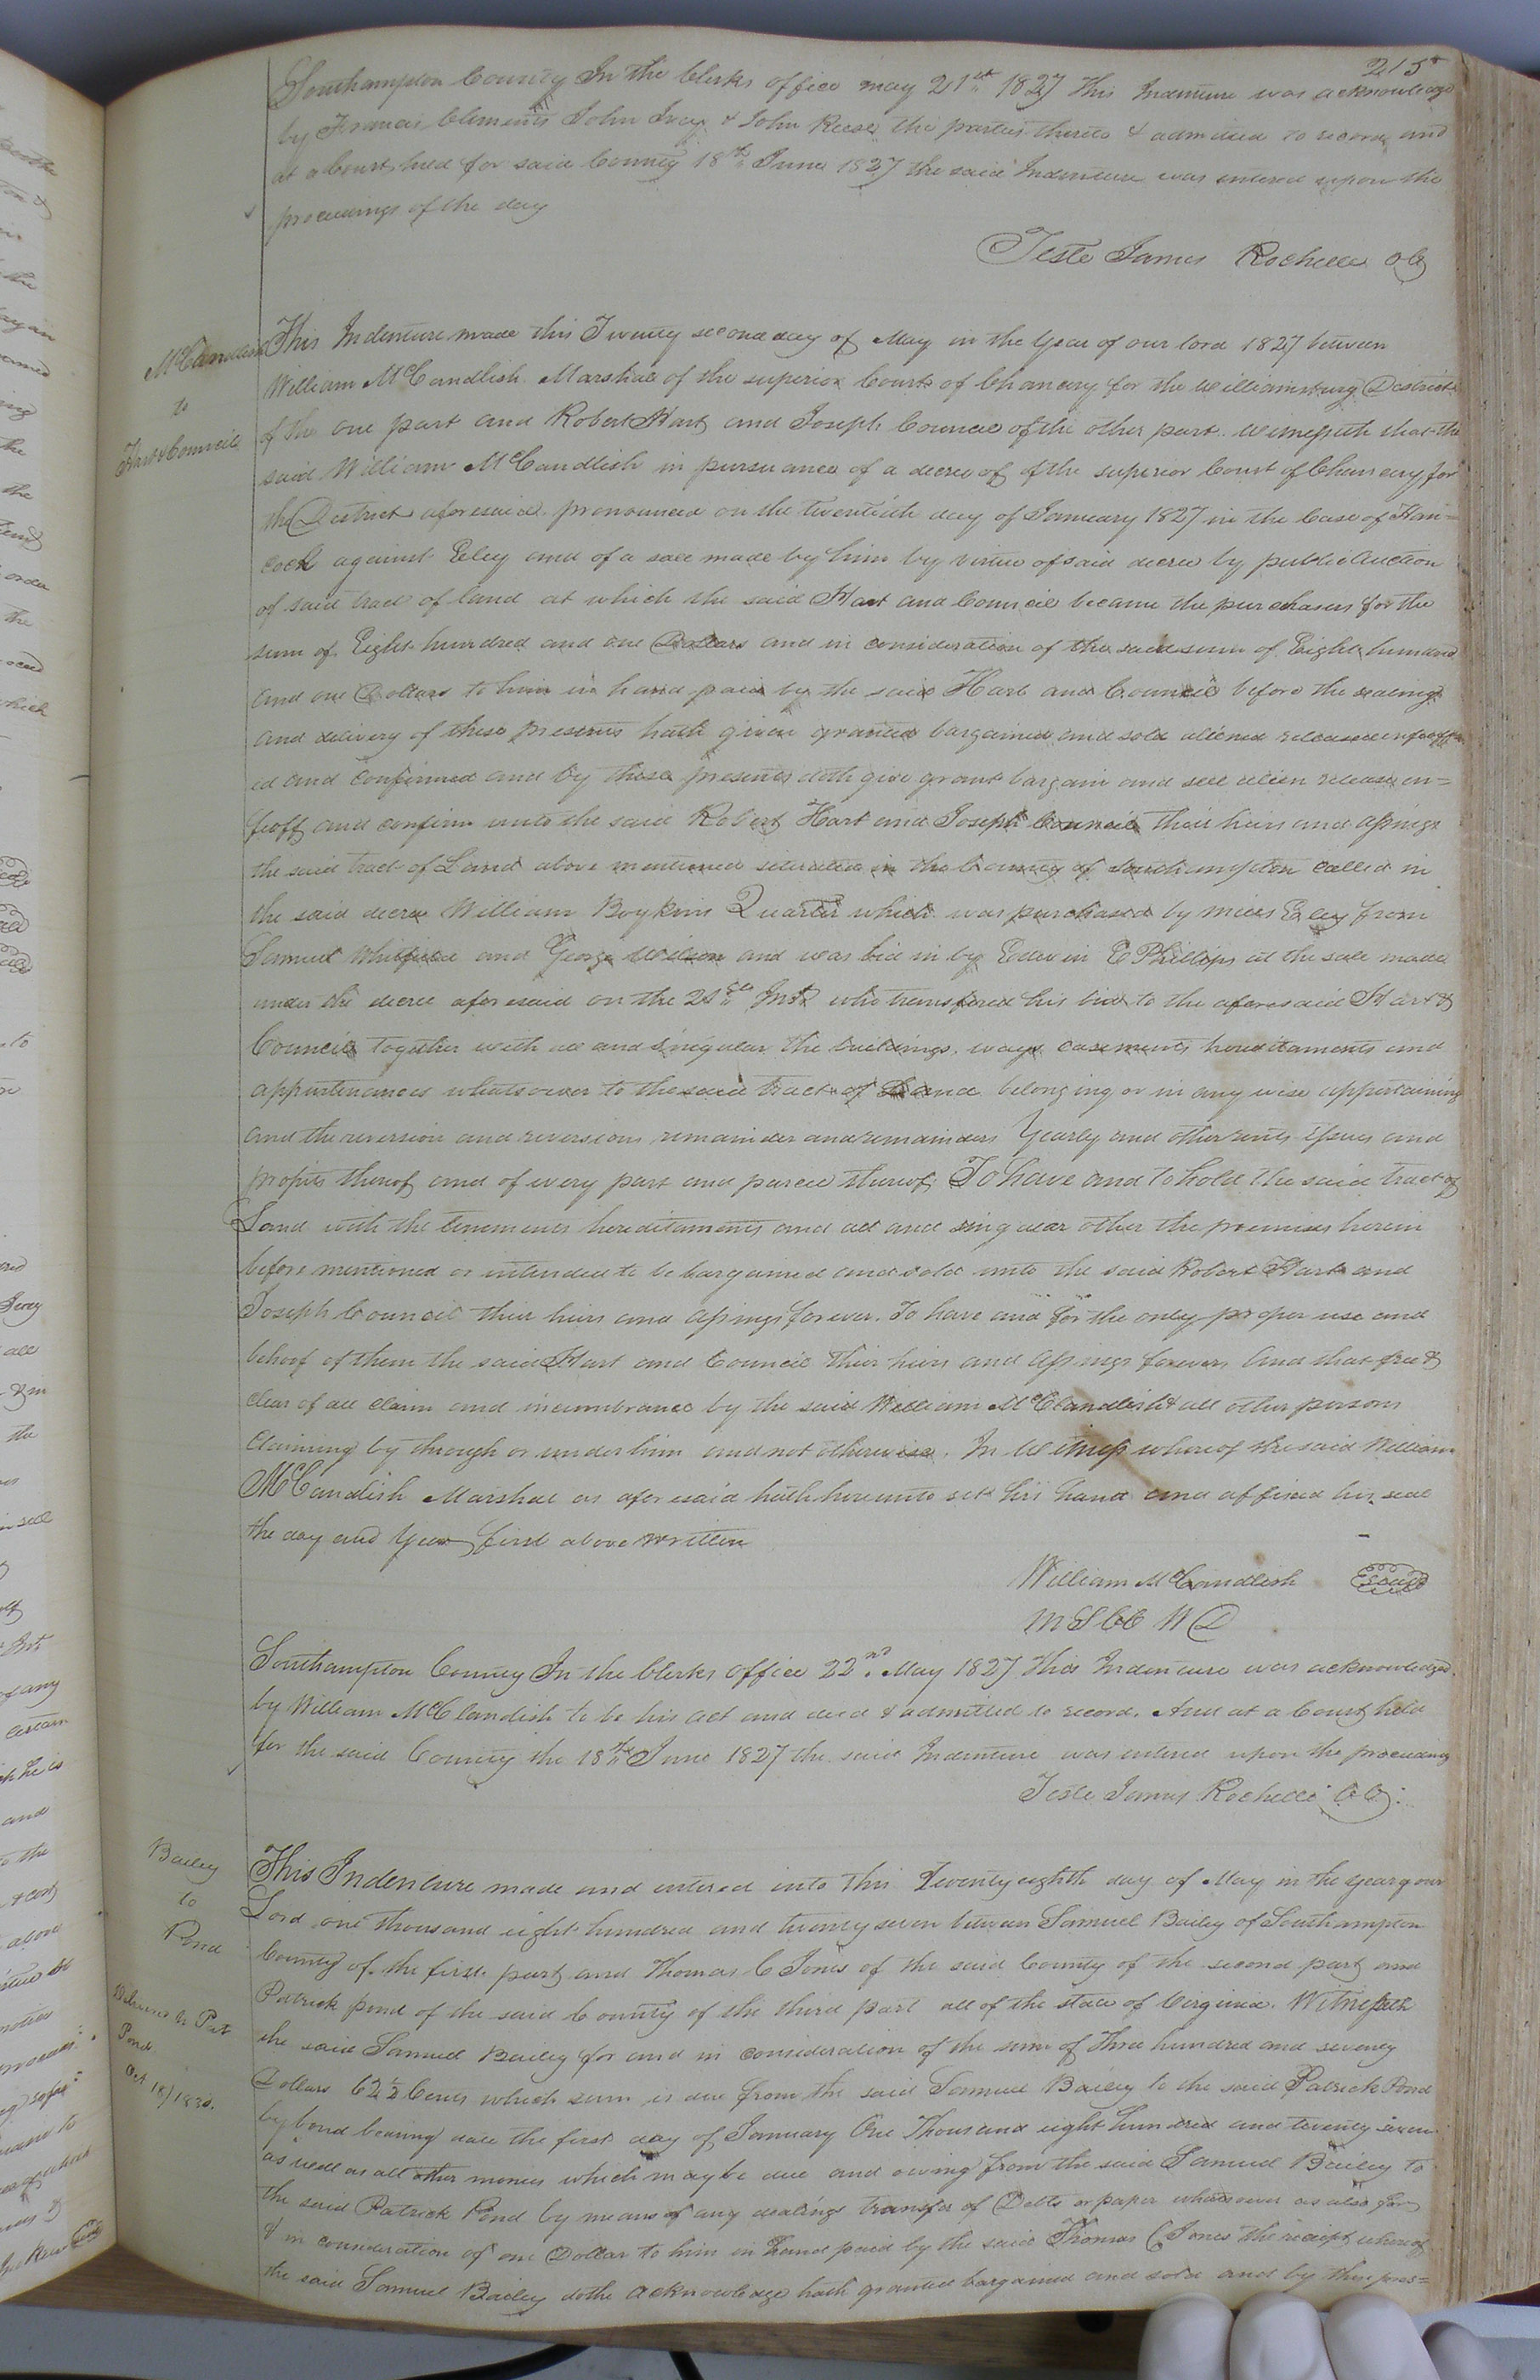 215
Southampton County In the Clerks office may 21st 1827 This Indenture was acknowledged
by Francis Clements John Ivey & John Reese the parties thereto & admitted to record and
at a Court held for said County 18th June 1827 the said Indenture was entered upon the
proceedings of the day
Teste James Rochelle
McCandlish
to
Hart & Council
This Indenture made this Twenty second day of May in the Year of our lord 1827 between
William McCandlish Marshal of the superior Court of Chancery for the Williamsburg District
of the one part and Robert Hart and Joseph Council of the other part. Witnesseth that the
said William McCandlish in pursuance of a decree of of the superior Court of Chancery for
the District aforesaid pronounced on the twentieth day of January 1827 in the Case of Han=
cock against Eley and of a sale made by him by virtue of said decree by public Auction
of said tract of land at which the said Hart and Council became the purchasers for the
sum of Eight hundred and one Dollars and in consideration of the said sum of Eight hundred
and one Dollars to him in hand paid by the said Hart and Council before the sealing
and delivery of these presents hath given granted bargained and sold aliened released enfeoff
ed and confirmed and by these presents doth give grant bargain and sell alien release en=
feoff and confirm unto the said Robert Hart and Joseph Council their heirs and assings
the said tract of Land above mentioned situated in the County of Southampton called in
the said decree William Boykins Quarter which was purchased by Miles Eley from
Samuel Whitfield and George Wilson and was bid in by Edwin E Phillips at the sale made
under the decree aforesaid on the 21st Inst who transfered his bid to the aforesaid Hart &
Council together with all and singular the buildings ways easments hereditaments and
appurtenances whatsoever to the said tract of Land belonging or in any wise appertaining
and the reversion and reversions remainder and remainders Yearly and other rents issues and
profits thereof and of every part and parcel thereof To have and to hold the said tract of
Land with the tenements hereditaments and all and singular other the premises herein
before mentioned or intended to be bargained and sold unto the said Robert Hart and
Joseph Council their heirs and assings forever. To have and for the only proper use and
behoof of them the said Hart and Council their heirs and assings forever And that free &
clear of all claim and incumbrance by the said William McClandlish & all other persons
Claiming by through or under him and not otherwise. In Witness whereof the said William
McCandish Marshal as aforesaid hath hereunto set his hand and affixed his seal
the day and Year first above written
William McCandlish Seal
M S C C W D
Southampton County In the Clerks office 22nd May 1827 This Indenture was acknowledged
by William McClandish to be his act and deed & admitted to record. And at a Court held
for the said County the 18th June 1827 the said Indenture was entered upon the proceedings
Teste James Rochelle
Bailey
to
Pond
Delivered to Pat
Pond
Oct 18 / 1830.
This Indenture made and entered into this Twenty eighth day of May in the year of our
Lord one thousand eight hundred and twenty seven between Samuel Bailey of Southampton
County of the first part and Thomas C Jones of the said County of the second part and
Patrick pond of the said County of the third part all of the state of Virginia. Witnesseth
the said Samuel Bailey for and in consideration of the sum of Three hundred and seventy
Dollars 62 1/2 Cents which sum is due from the said Samuel Bailey to the said Patrick Pond
by bond bearing date the first day of January One Thousand eight hundred and twenty seven
as well as all other monies which may be due and owing from the said Samuel Bailey to
the said Patrick Pond by means of any dealings transfer of Debts or paper whatsoever as also for
& in consideration of one Dollar to him in hand paid by the said Thomas C Jones the receipt whereof
the said Samuel Bailey dothe acknowledge hath granted bargained and sold and by these pres=